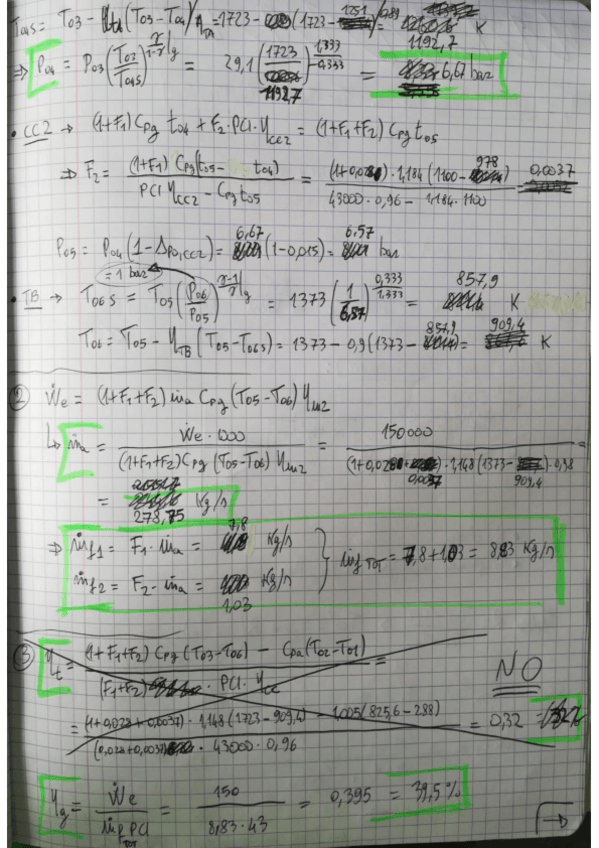 T04s = T03 - (T03-T04)/η = 1723 - (1723 - 1251)/ = 1192,7 K
⇒ P04 = P03 (T03/T04s)^(γ/1-γ)|g = 29,1 (1723/1192,7)^(1,333/-0,333) = 6,67 bar
• CC2 → (1+F1) Cpg t04 + F2 · PCI · ηcc2 = (1+F1+F2) Cpg t05
⇒ F2 = (1+F1) Cpg(t05 - t04) / PCI ηcc2 - Cpg t05 = (1+0,028) · 1,184 (1100 - 978) / 43000 · 0,96 - 1,184 · 1100 = 0,0037
P05 = P04 (1-ΔP0,cc2) = 6,67 (1-0,015) = 6,57 bar
= 1 bar
• TB → T06s = T05 (P06/P05)^(γ-1/γ)|g = 1373 (1/6,57)^(0,333/1,333) = 857,9 K
T06 = T05 - ηTB (T05-T06s) = 1373 - 0,9 (1373 - 857,9) = 909,4 K
② Ẇe = (1+F1+F2) ṁa Cpg (T05-T06) ηm2
↳ ṁa = Ẇe · 1000 / (1+F1+F2) Cpg (T05-T06) ηm2 = 150000 / (1+0,028+0,0037) · 1,148 (1373 - 909,4) · 0,98 =
= 278,75 Kg/s
⇒ ṁf1 = F1 · ṁa = 7,8 Kg/s
ṁf2 = F2 · ṁa = 1,03 Kg/s
ṁf TOT = 7,8 + 1,03 = 8,83 Kg/s
③ ηt = (1+F1+F2) Cpg (T03-T06) - Cpa (T02-T01) / (F1+F2) · PCI · ηcc =
NO
= (1+0,028+0,0037) · 1,148 (1723 - 909,4) - 1,005 (825,6 - 288) / (0,028+0,0037) · 43000 · 0,96 = 0,32
ηg = Ẇe / ṁf TOT PCI = 150 / 8,83 · 43 = 0,395 = 39,5 %
→